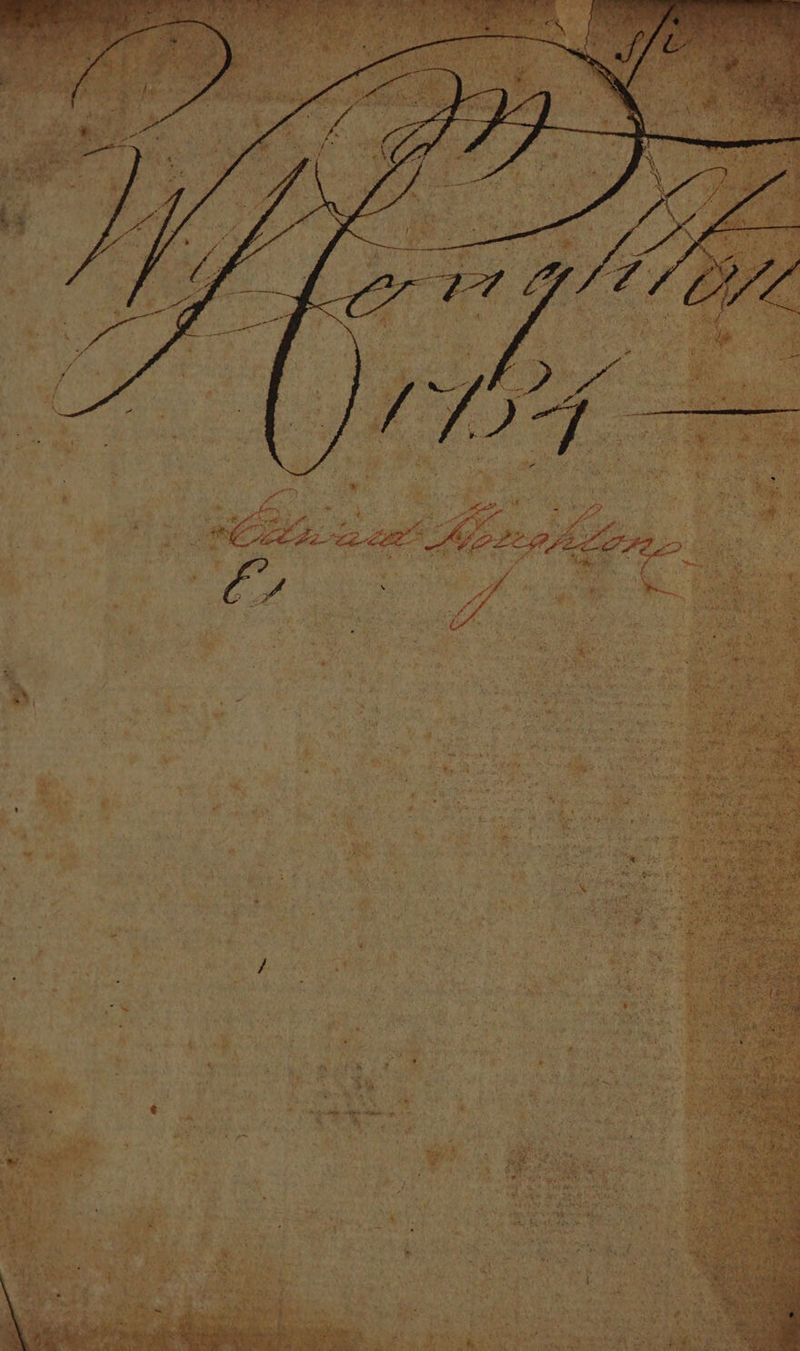 Wm Houghton
1734
Edward Houghton
Es